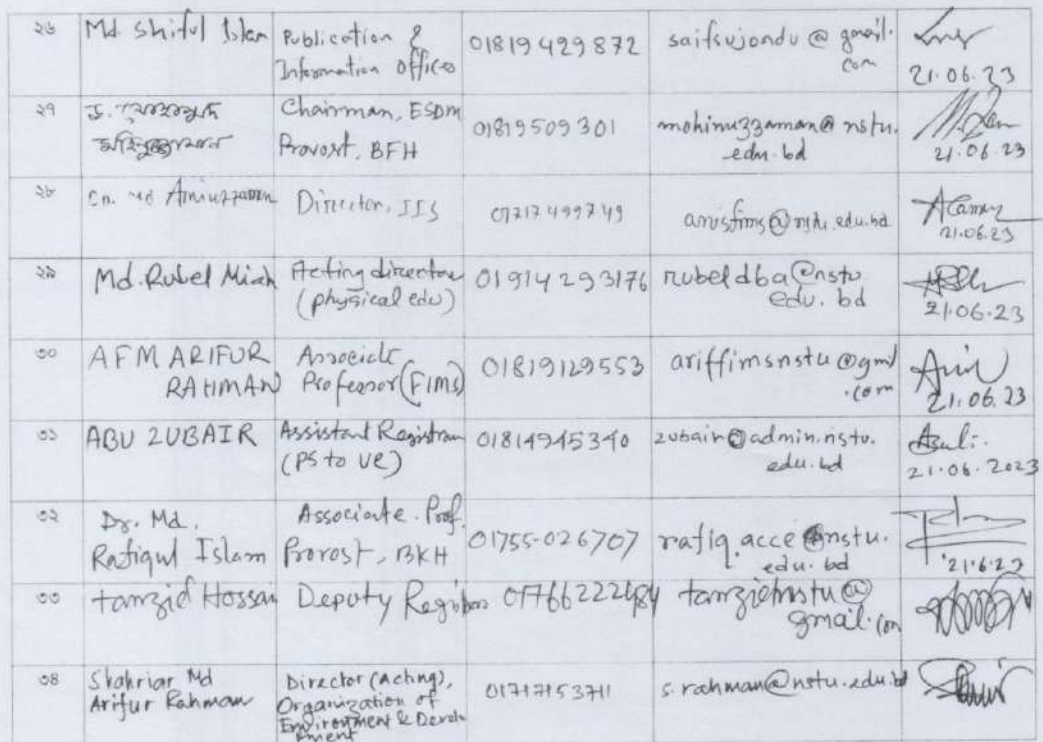 ২৬ Md. Shiful Islam Publication & Information Officer 01819429872 saifsujondu@gmail.com 21.06.23
২৭ ড. মোহাম্মদ মহিনুজ্জামান Chairman, ESDM Provost, BFH 01819509301 mohinuzzaman@nstu.edu.bd 21.06.23
২৮ Md Director, IIS 01717499749 21.06.23
২৯ Md. Rubel Miah Acting director (physical edu) 01914293176 rubeldba@nstu.edu.bd 21.06.23
৩০ AFM ARIFUR RAHMAN Associate Professor (FIMS) 01819129553 ariffimsnstu@gmil.com 21.06.23
৩১ ABU ZUBAIR Assistant Registrar (PS to VC) 01814945340 zubair@admin.nstu.edu.bd 21.06.2023
৩২ Dr. Md. Rafiqul Islam Associate. Prof. Provost, BKH 01755-026707 rafiq.acce@nstu.edu.bd 21.6.23
৩৩ tamzid Hossain Deputy Registrar 01766222484 gmail.com
৩৪ Shahriar Md Arifur Rahman Director (Acting), Organization of Environment & Development 01717153711 s.rahman@nstu.edu.bd